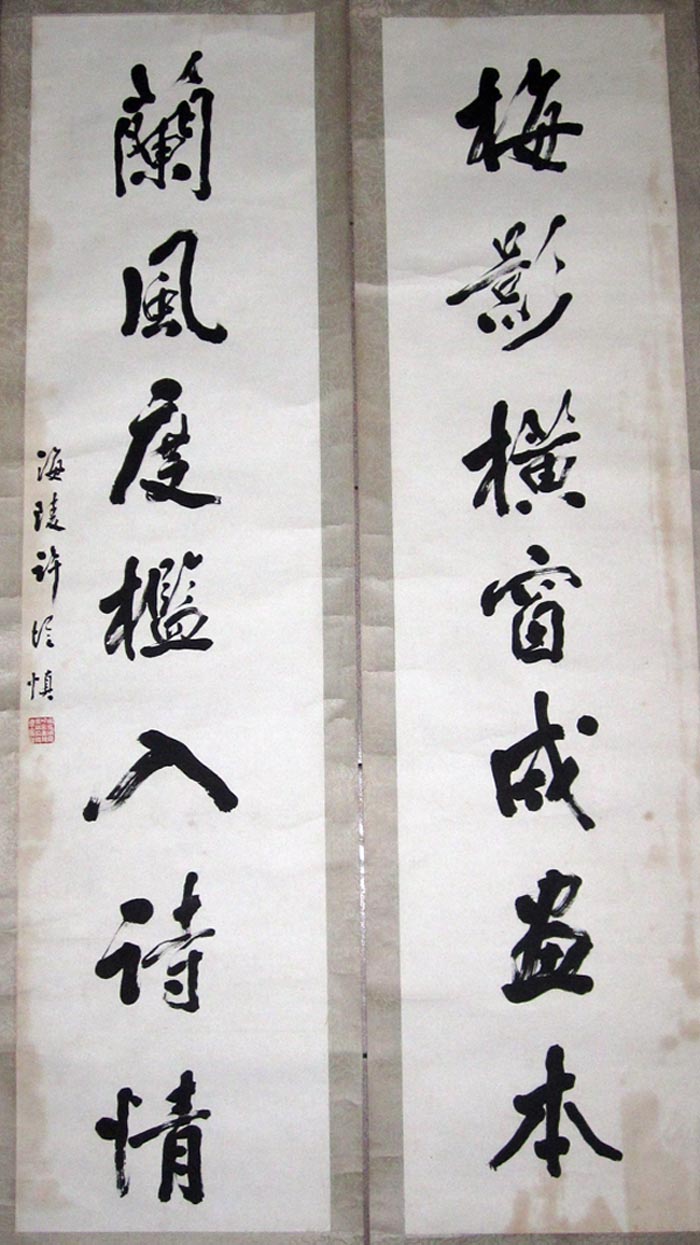 梅影橫窗成畫本
蘭風度檻入詩情
海陵許從慎